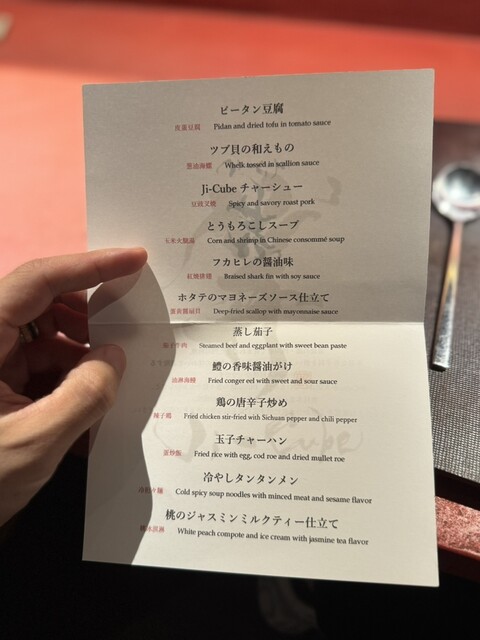 ピータン豆腐
皮蛋豆腐 Pidan and dried tofu in tomato sauce
ツブ貝の和えもの
葱油海螺 Whelk tossed in scallion sauce
Ji-Cube チャーシュー
豆豉叉焼 Spicy and savory roast pork
とうもろこしスープ
玉米火腿湯 Corn and shrimp in Chinese consommé soup
フカヒレの醤油味
紅焼排翅 Braised shark fin with soy sauce
ホタテのマヨネーズソース仕立て
蛋黄醤扇貝 Deep-fried scallop with mayonnaise sauce
蒸し茄子
茄子牛肉 Steamed beef and eggplant with sweet bean paste
鱧の香味醤油がけ
油淋海鰻 Fried conger eel with sweet and sour sauce
鶏の唐辛子炒め
辣子鶏 Fried chicken stir-fried with Sichuan pepper and chili pepper
玉子チャーハン
蛋炒飯 Fried rice with egg, cod roe and dried mullet roe
冷やしタンタンメン
Cold spicy soup noodles with minced meat and sesame flavor
桃のジャスミンミルクティー仕立て
White peach compote and ice cream with jasmine tea flavor
Ji-Cube